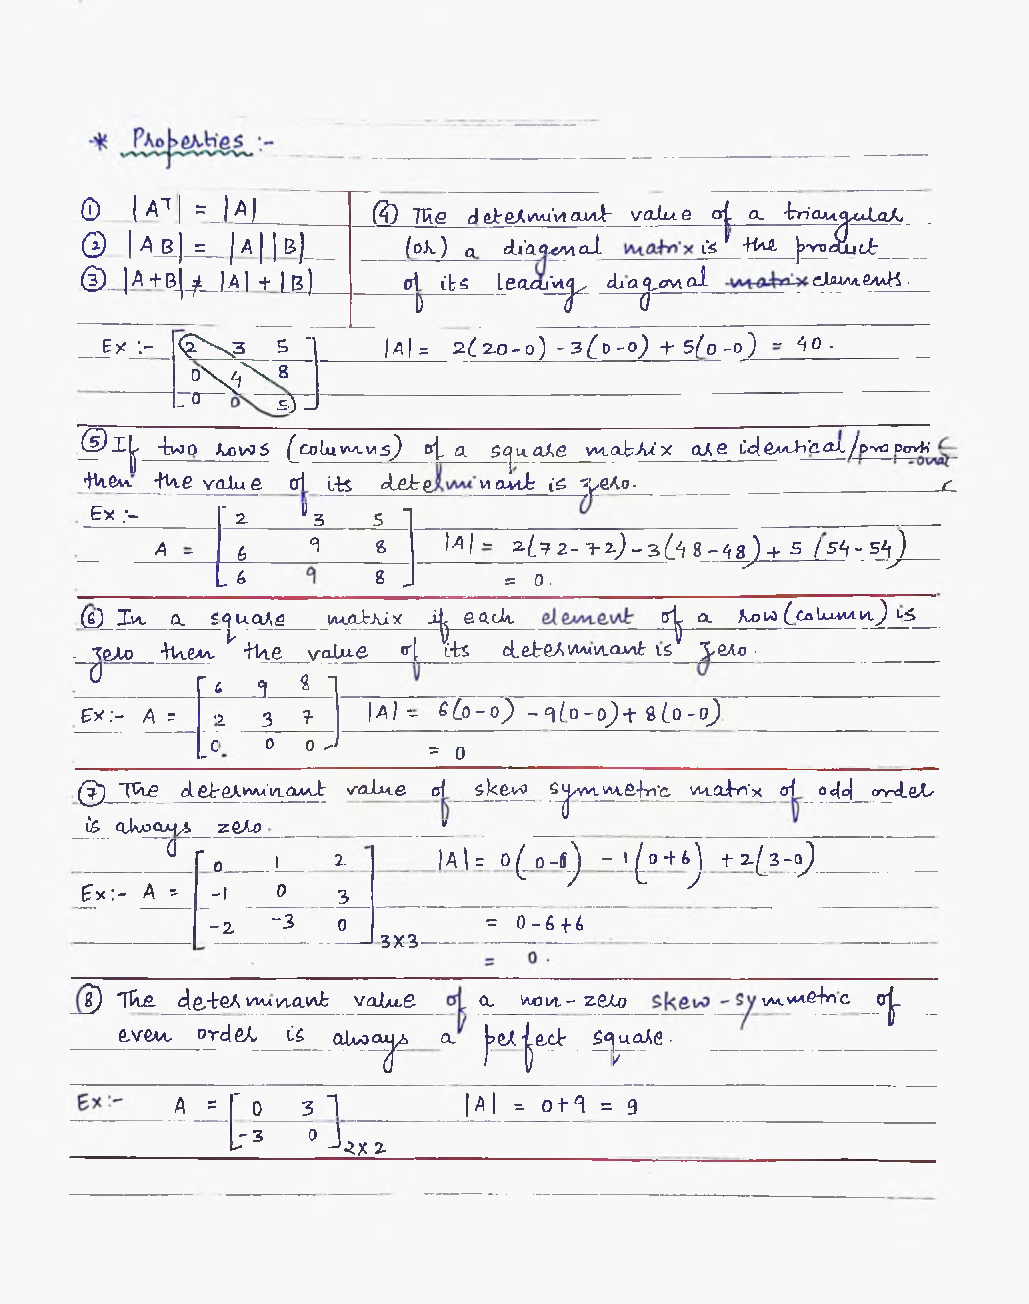 * Properties :-
① |Aᵀ| = |A|
② |AB| = |A||B|
③ |A+B| ≠ |A| + |B|
④ The determinant value of a triangular
(or) a diagonal matrix is the product
of its leading diagonal elements.
Ex :- [ 2 3 5
0 4 8
0 0 5 ]
|A| = 2(20-0) - 3(0-0) + 5(0-0) = 40.
⑤ If two rows (columns) of a square matrix are identical/proportional
then the value of its determinant is zero.
Ex :-
A = [ 2 3 5
6 9 8
6 9 8 ]
|A| = 2(72-72) - 3(48-48) + 5(54-54)
= 0.
⑥ In a square matrix if each element of a row (column) is
zero then the value of its determinant is zero.
Ex :- A = [ 6 9 8
2 3 7
0 0 0 ]
|A| = 6(0-0) - 9(0-0) + 8(0-0)
= 0
⑦ The determinant value of skew symmetric matrix of odd order
is always zero.
Ex :- A = [ 0 1 2
-1 0 3
-2 -3 0 ] 3x3
|A| = 0(0-6) - 1(0+6) + 2(3-0)
= 0-6+6
= 0.
⑧ The determinant value of a non-zero skew-symmetric of
even order is always a perfect square.
Ex :- A = [ 0 3
-3 0 ] 2x2
|A| = 0+9 = 9